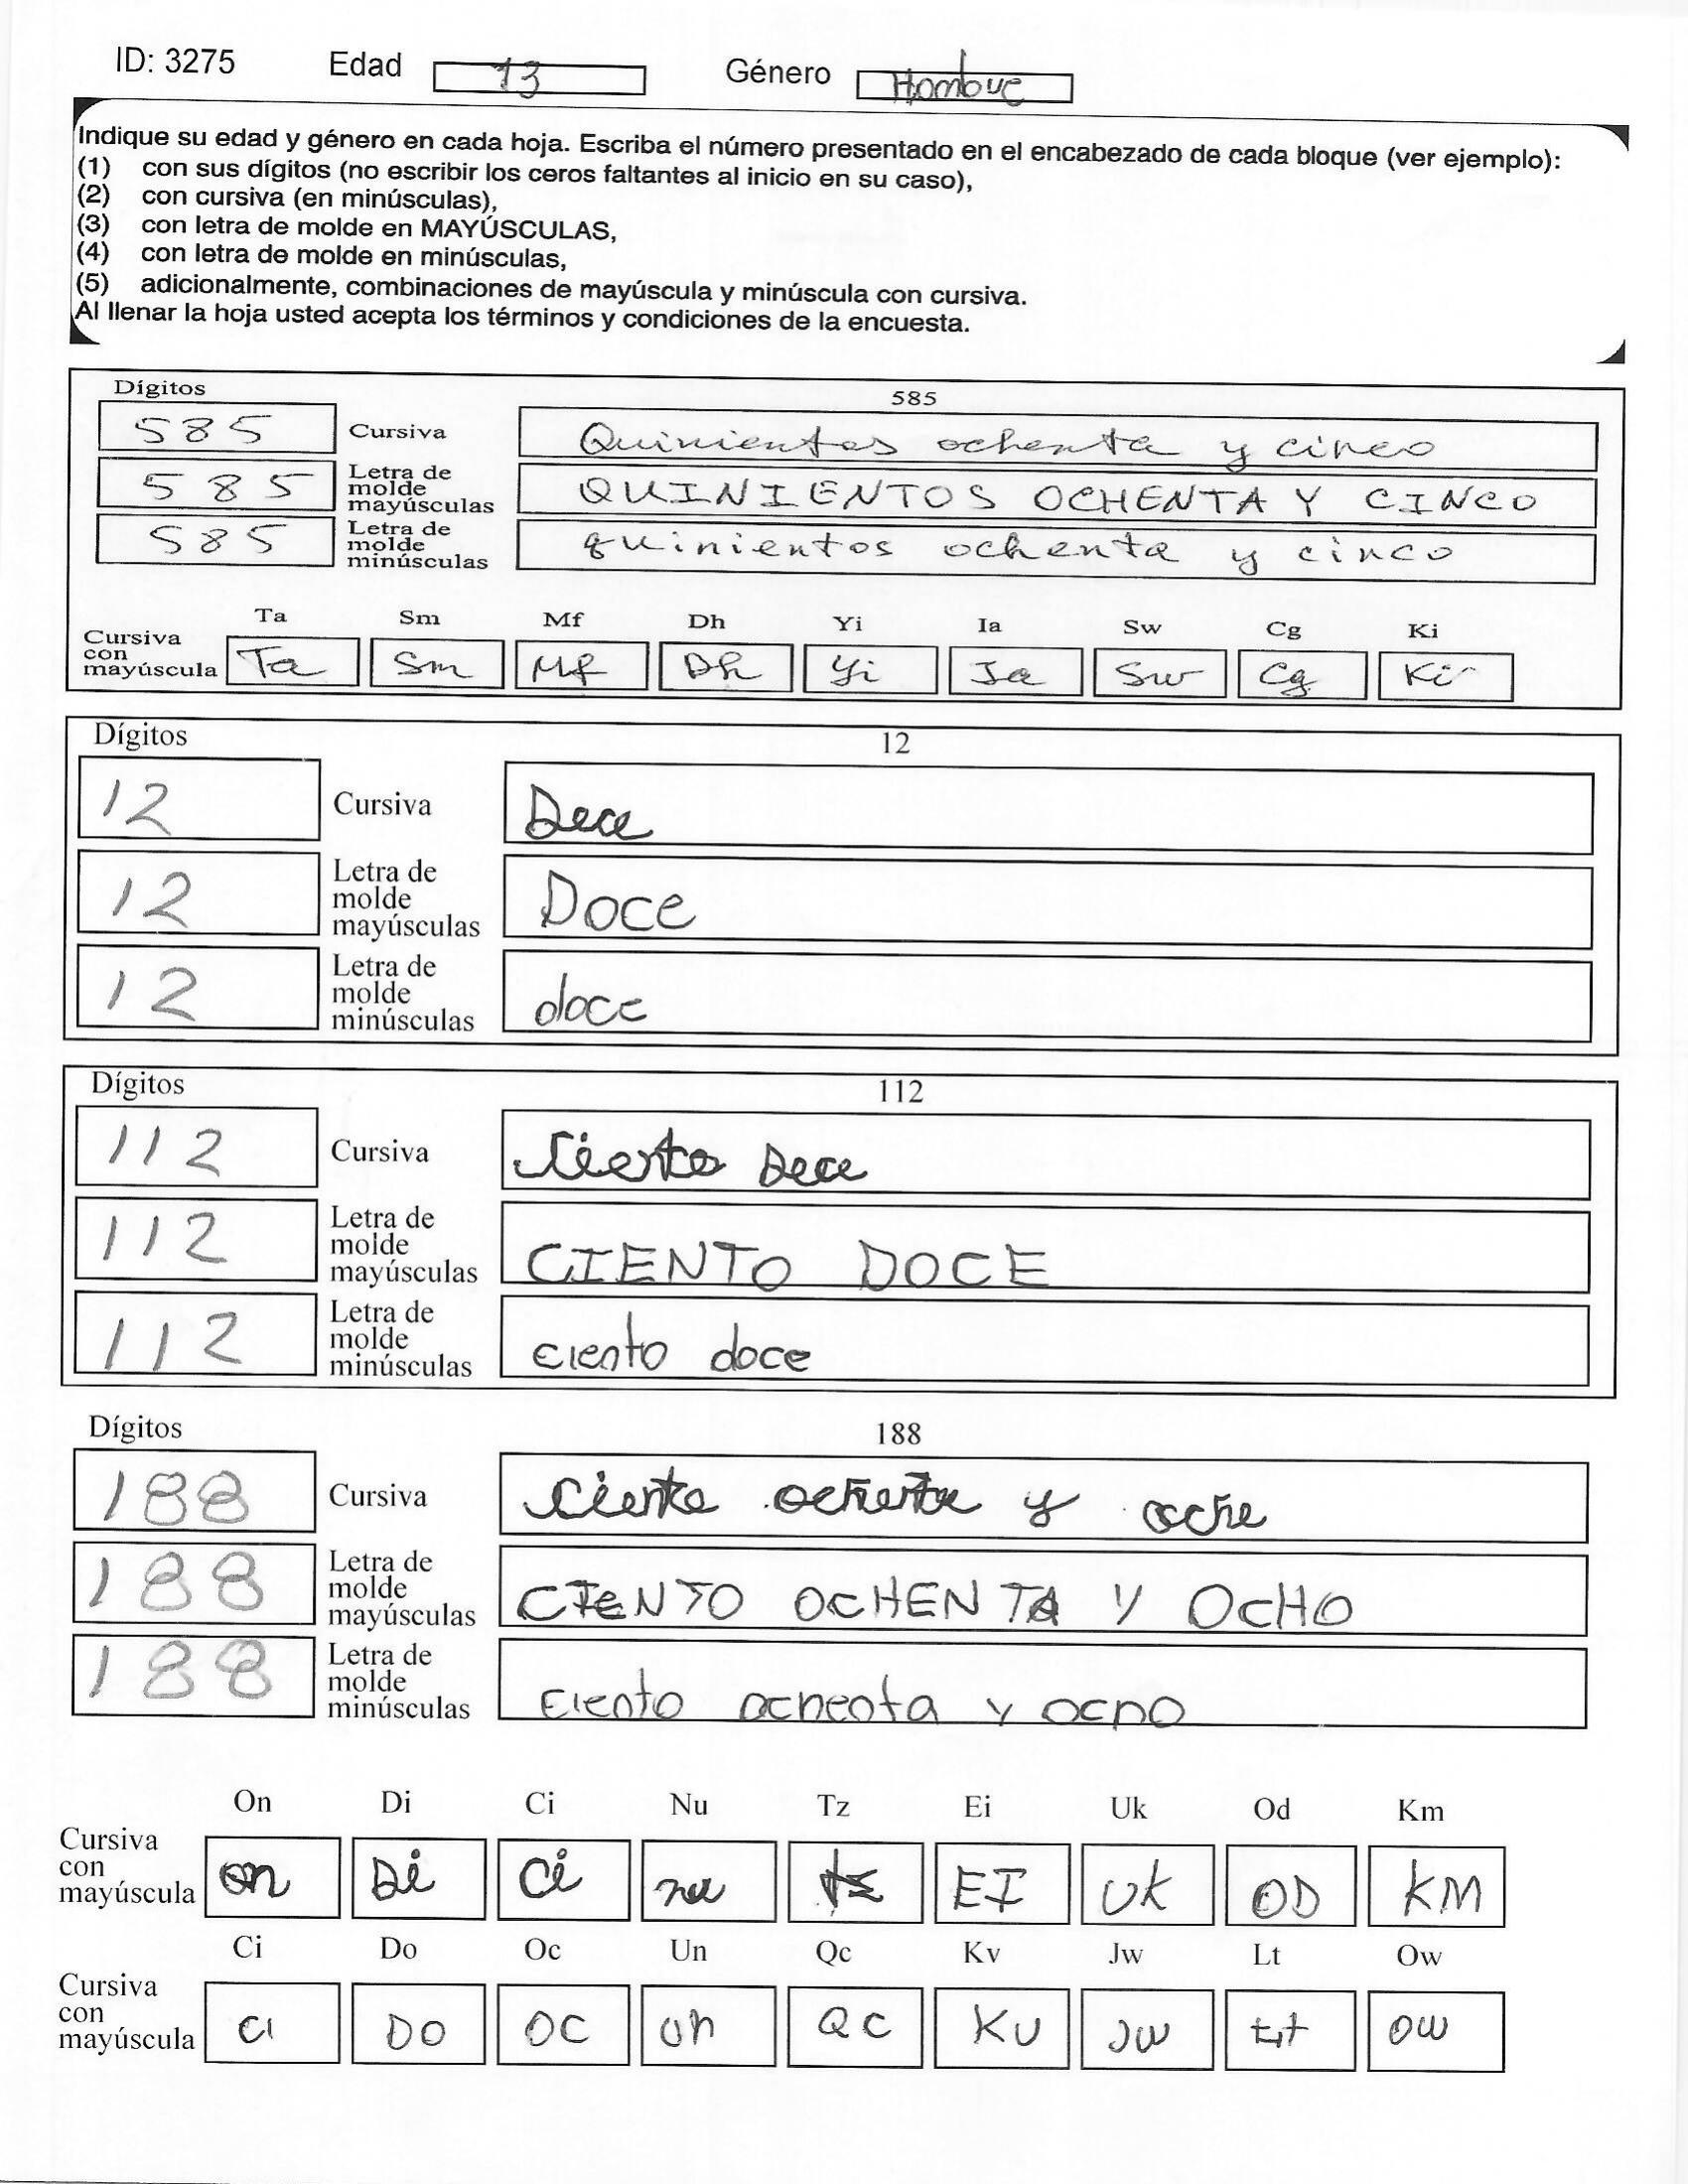 ID: 3275 Edad 13 Género Hombre
Indique su edad y género en cada hoja. Escriba el número presentado en el encabezado de cada bloque (ver ejemplo):
(1) con sus dígitos (no escribir los ceros faltantes al inicio en su caso),
(2) con cursiva (en minúsculas),
(3) con letra de molde en MAYÚSCULAS,
(4) con letra de molde en minúsculas,
(5) adicionalmente, combinaciones de mayúscula y minúscula con cursiva.
Al llenar la hoja usted acepta los términos y condiciones de la encuesta.
Dígitos 585
585 Cursiva Quinientos ochenta y cinco
585 Letra de molde mayúsculas QUINIENTOS OCHENTA Y CINCO
585 Letra de molde minúsculas quinientos ochenta y cinco
Ta Sm Mf Dh Yi Ia Sw Cg Ki
Cursiva con mayúscula Ta Sm Mf Dh Yi Ia Sw Cg Ki
Dígitos 12
12 Cursiva Doce
12 Letra de molde mayúsculas DOCE
12 Letra de molde minúsculas doce
Dígitos 112
112 Cursiva Ciento Doce
112 Letra de molde mayúsculas CIENTO DOCE
112 Letra de molde minúsculas ciento doce
Dígitos 188
188 Cursiva Ciento ochenta y ocho
188 Letra de molde mayúsculas CIENTO OCHENTA Y OCHO
188 Letra de molde minúsculas ciento ochenta y ocho
On Di Ci Nu Tz Ei Uk Od Km
Cursiva con mayúscula on Di Ci nu tz EI UK OD KM
Ci Do Oc Un Qc Kv Jw Lt Ow
Cursiva con mayúscula CI DO OC Un QC KV JW OW